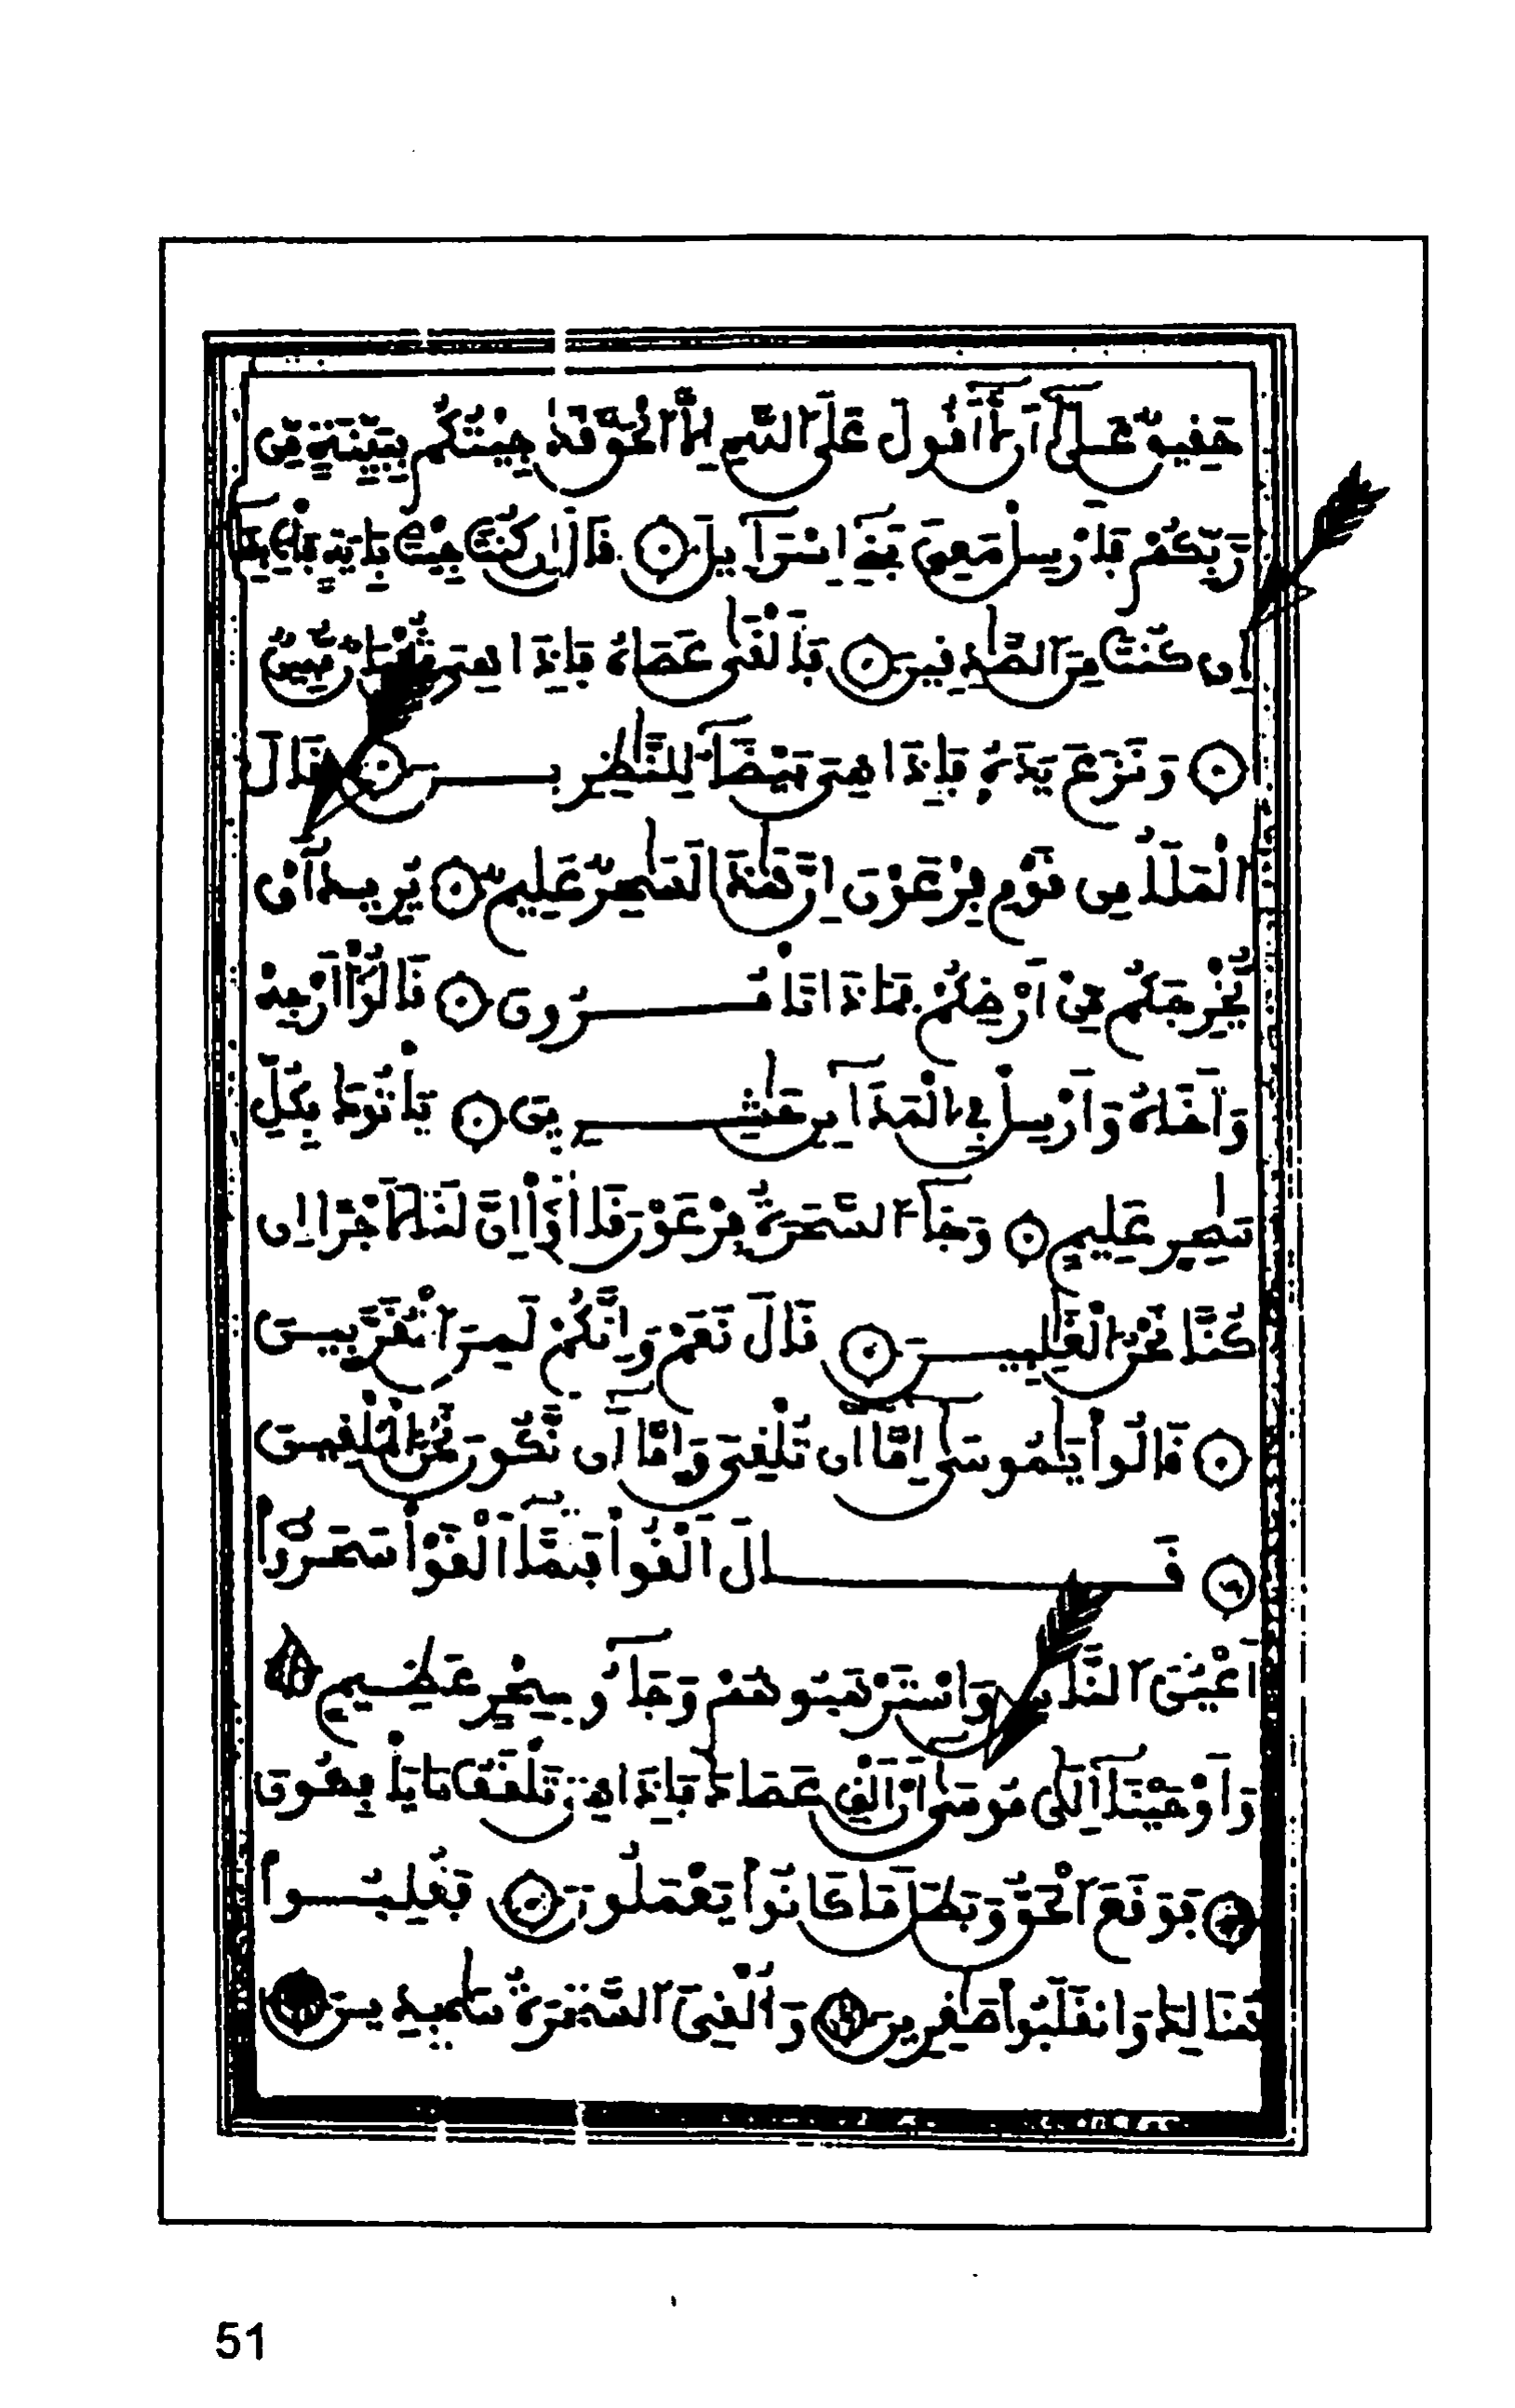 حَقِيقٌ عَلَىٰٓ أَن لَّآ أَقُولَ عَلَى ٱللَّهِ إِلَّا ٱلْحَقَّ قَدْ جِئْتُكُم بِبَيِّنَةٍ مِّن
رَّبِّكُمْ فَأَرْسِلْ مَعِي بَنِىٓ إِسْرَٰٓءِيلَ ۝ قَالَ إِن كُنتَ جِئْتَ بِـَٔايَةٍ فَأْتِ بِهَآ
إِن كُنتَ مِنَ ٱلصَّٰدِقِينَ ۝ فَأَلْقَىٰ عَصَاهُ فَإِذَا هِىَ ثُعْبَانٌ مُّبِينٌ
۝ وَنَزَعَ يَدَهُۥ فَإِذَا هِىَ بَيْضَآءُ لِلنَّٰظِرِينَ ۝ قَالَ
ٱلْمَلَأُ مِن قَوْمِ فِرْعَوْنَ إِنَّ هَٰذَا لَسَٰحِرٌ عَلِيمٌ ۝ يُرِيدُ أَنْ
يُّخْرِجَكُم مِّنْ أَرْضِكُمْ فَمَاذَا تَأْمُرُونَ ۝ قَالُوٓا۟ أَرْجِهْ
وَأَخَاهُ وَأَرْسِلْ فِى ٱلْمَدَآئِنِ حَٰشِرِينَ ۝ يَأْتُوكَ بِكُلِّ
سَٰحِرٍ عَلِيمٍ ۝ وَجَآءَ ٱلسَّحَرَةُ فِرْعَوْنَ قَالُوٓا۟ إِنَّ لَنَا لَأَجْرًا إِن
كُنَّا نَحْنُ ٱلْغَٰلِبِينَ ۝ قَالَ نَعَمْ وَإِنَّكُمْ لَمِنَ ٱلْمُقَرَّبِينَ
۝ قَالُوا۟ يَٰمُوسَىٰٓ إِمَّآ أَن تُلْقِىَ وَإِمَّآ أَن نَّكُونَ نَحْنُ ٱلْمُلْقِينَ
۝ قَالَ أَلْقُوا۟ فَلَمَّآ أَلْقَوْا۟ سَحَرُوٓا۟
أَعْيُنَ ٱلنَّاسِ وَٱسْتَرْهَبُوهُمْ وَجَآءُو بِسِحْرٍ عَظِيمٍ ۝
وَأَوْحَيْنَآ إِلَىٰ مُوسَىٰٓ أَنْ أَلْقِ عَصَاكَ فَإِذَا هِىَ تَلْقَفُ مَا يَأْفِكُونَ
۝ فَوَقَعَ ٱلْحَقُّ وَبَطَلَ مَا كَانُوا۟ يَعْمَلُونَ ۝ فَغُلِبُوا۟
هُنَالِكَ وَٱنقَلَبُوا۟ صَٰغِرِينَ ۝ وَأُلْقِىَ ٱلسَّحَرَةُ سَٰجِدِينَ ۝
51